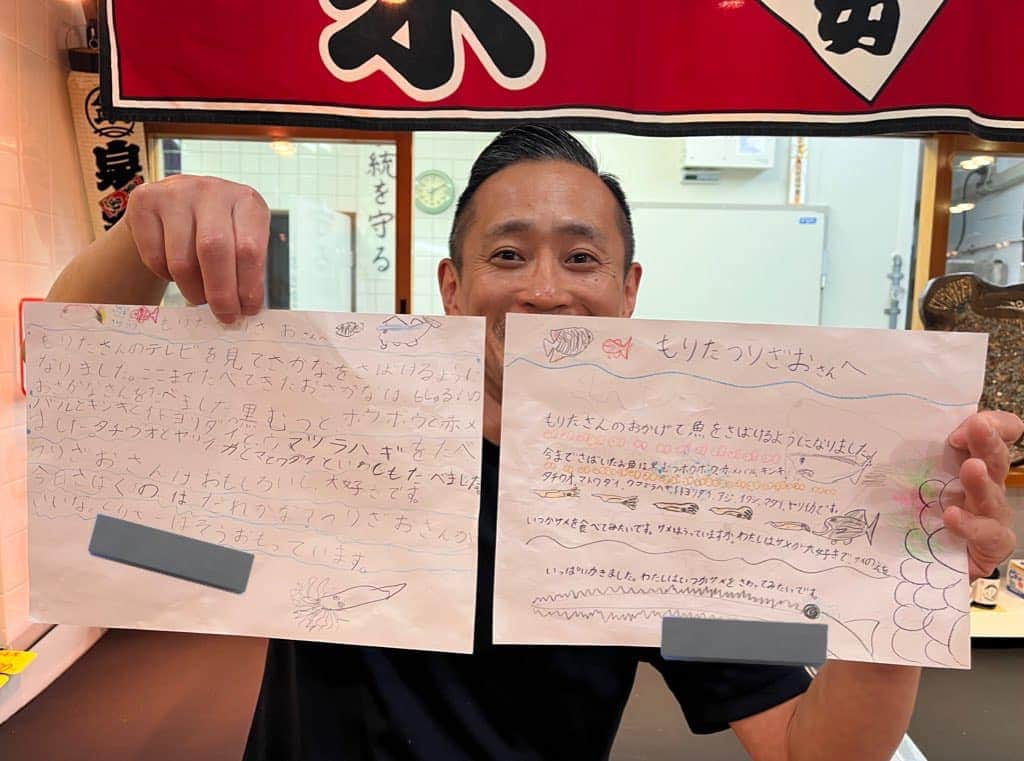 統を守る
もりたつりざおさんへ
もりたさんのテレビを見てさかなをさばけるように
なりました。ここまでたべてきたおさかなは
おさかなさんをたべました黒むつとホウボウと赤メ
バルとキンキとイトヨリダイ
ましたタチウオとヤリイカとウマヅラハギをたべ
マトウダイといわしもたべました
つりざおさんはおもしろいし大好きです。
今日さばくのはだれかな?つりざおさんが
いいな、とりさこはそうおもっています。
もりたつりざおさんへ
もりたさんのおかげで魚をさばけるようになりました。
今までさばしたお魚は黒むつホウボウ赤メバル キンキ
タチウオ、マトウダイ、ウマヅラハギ、イトヨリダイ、アジ、イワシ、マダイ、ヤリイカです。
いつかサメを食べてみたいです。サメはうっていますか、わたしはサメが大好きでサメのえを
いっぱいかきました。わたしはいつかサメをさわってみたいです。